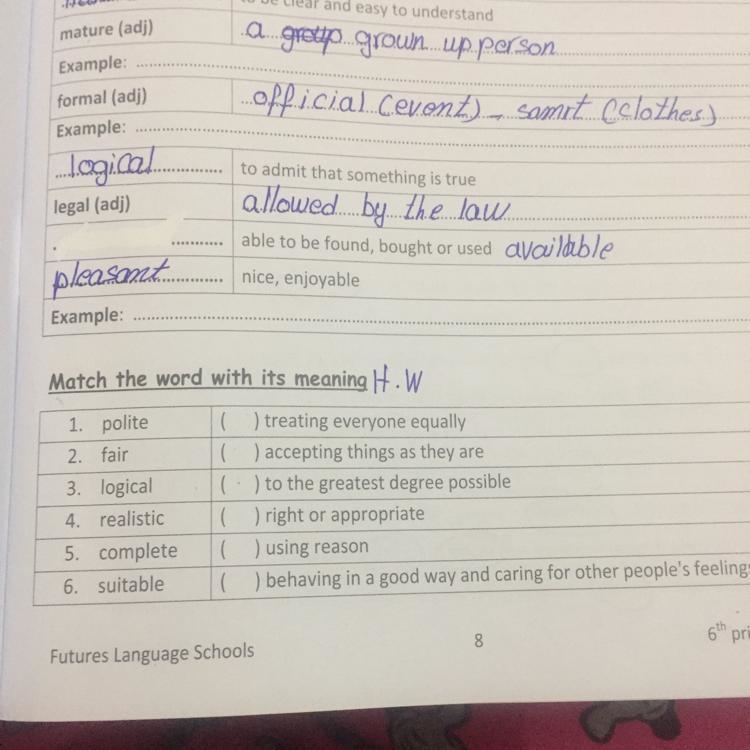 be clear and easy to understand
mature (adj) a group grown up person
Example:
formal (adj) official (event) – samrt (clothes)
Example:
logical to admit that something is true
legal (adj) allowed by the law
able to be found, bought or used available
pleasant nice, enjoyable
Example:
Match the word with its meaning H.W
1. polite ( ) treating everyone equally
2. fair ( ) accepting things as they are
3. logical ( ) to the greatest degree possible
4. realistic ( ) right or appropriate
5. complete ( ) using reason
6. suitable ( ) behaving in a good way and caring for other people's feelings
Futures Language Schools 8 6th pri